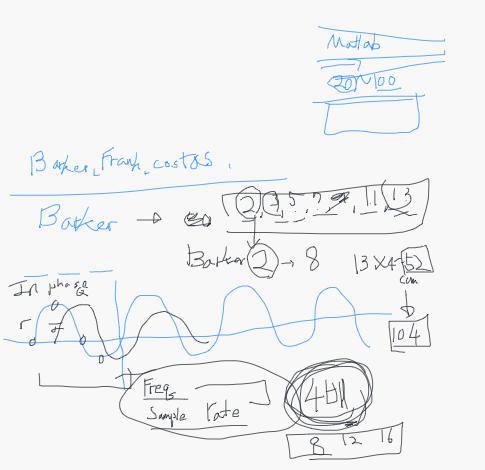 Matlab
20~100
Barker, Frank, costas.
Barker → 2, 3, 5, 7, 11, 13
Barker 2 → 8 13x4=52
In phase
Q
104
Freq
Sample rate
8 12 16